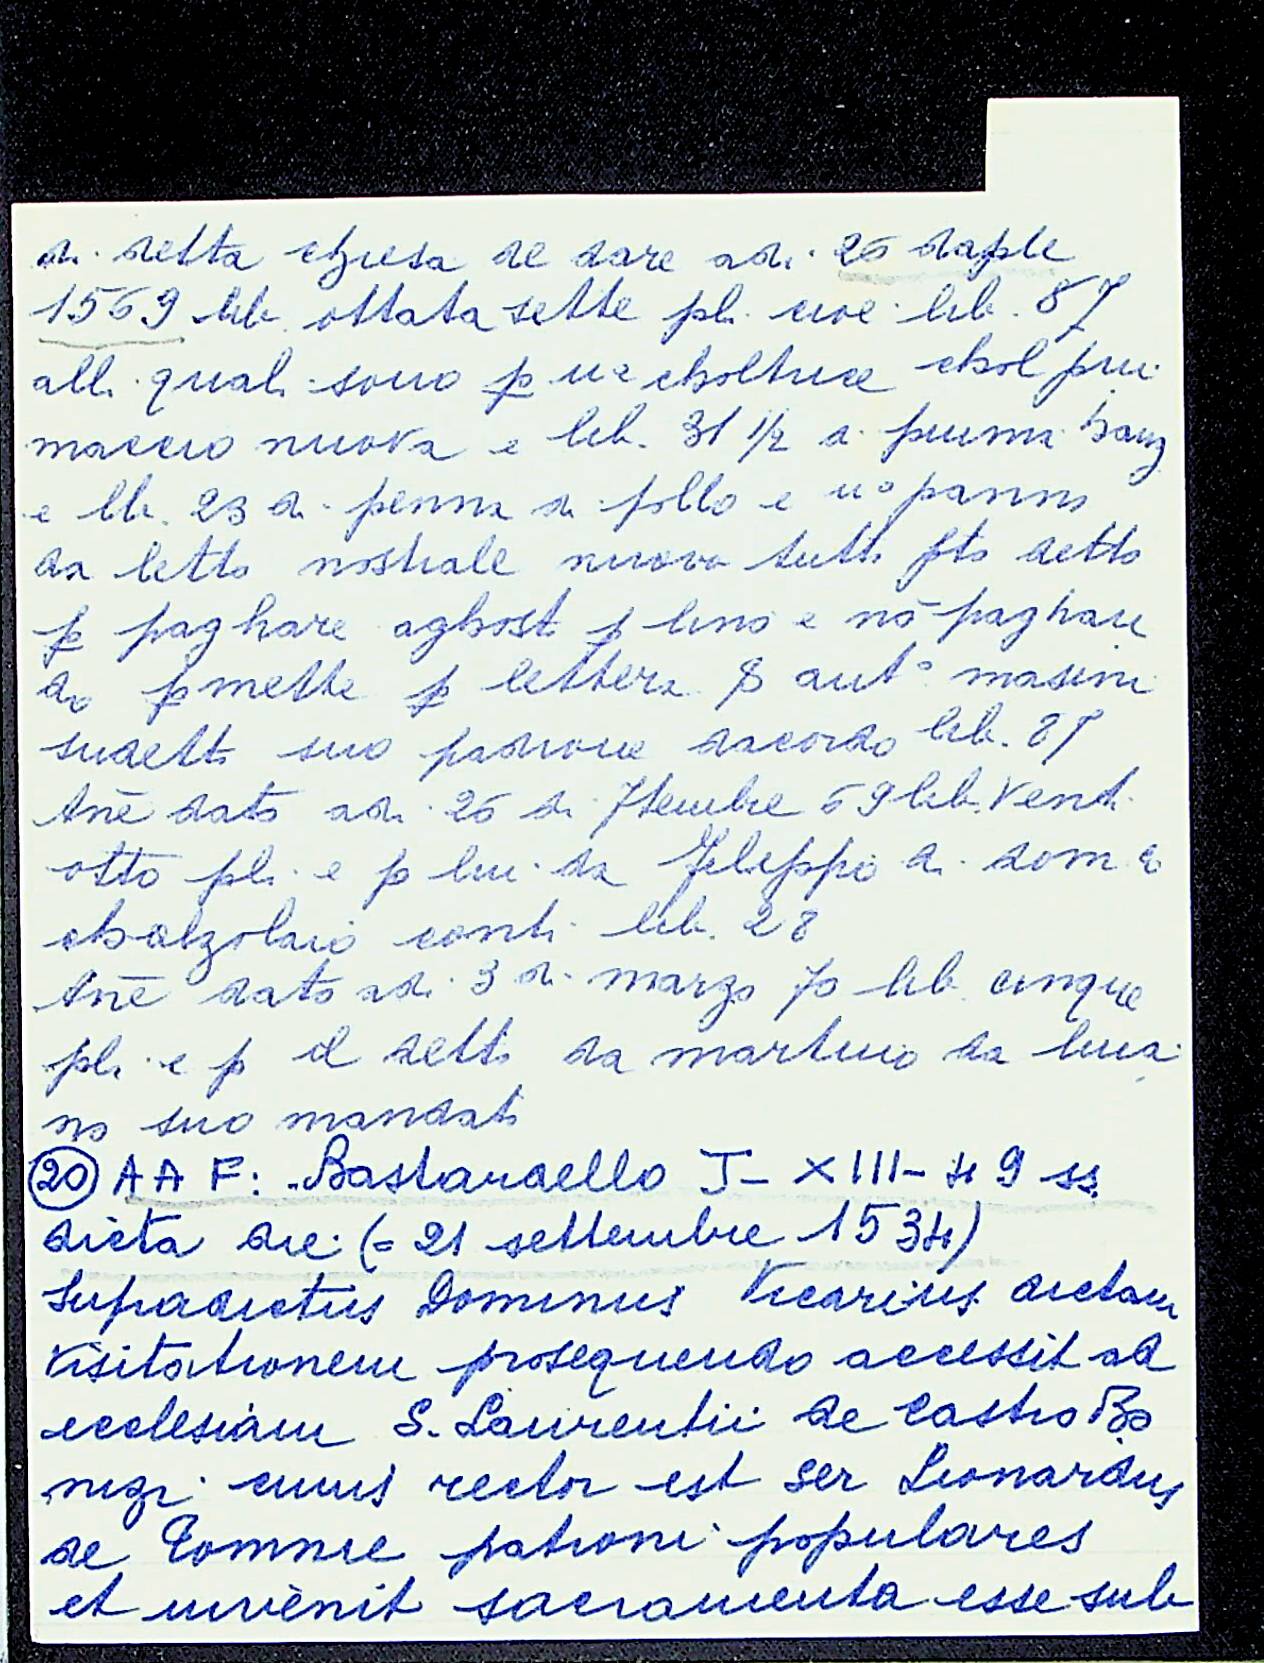 di detta chiesa de dare adi 26 daple
1569 lib. ottata sette pli cioe lib. 87
alli quali sono p una choltrice chol piu
maccio nuova e lib. 31 1/2 di piuma banz
e lib. 23 di penna di pollo e uº panno
da letto nostrale nuovo tutto fto detto
p paghare aghosto p lino e nō paghare
do pmette p lettera § antº masini
sudetto suo padrone dacordo lib. 87
Ane dato adi 26 di 7tembre 69 lib. Vent
otto pli e p lui da Fileppo di domco
chalzolaio conti lib. 28
Ane dato adi 3 di marzo 70 lib. cinque
pli e p il detto da martino da lucia
no suo mandato
(20) AAF: Bastardello I - XIII - 49 ss
dicta die (= 21 settembre 1534)
Supradictus Dominus Vicarius dictam
Visitationem prosequendo accessit ad
ecclesiam S. Laurentii de Castro Bo
nizi cuius rector est ser Leonardus
de Tomme patroni populares
et invenit sacramenta esse sub